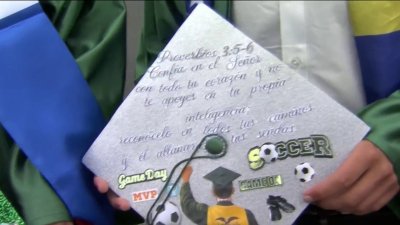 Proverbios 3.5-6
Confia en el Señor
con todo tu corazón y no
te apoyes en tu propia
inteligencia,
reconócelo en todos tus caminos
y el allanará tus sendas
SOCCER
Game Day
MVP